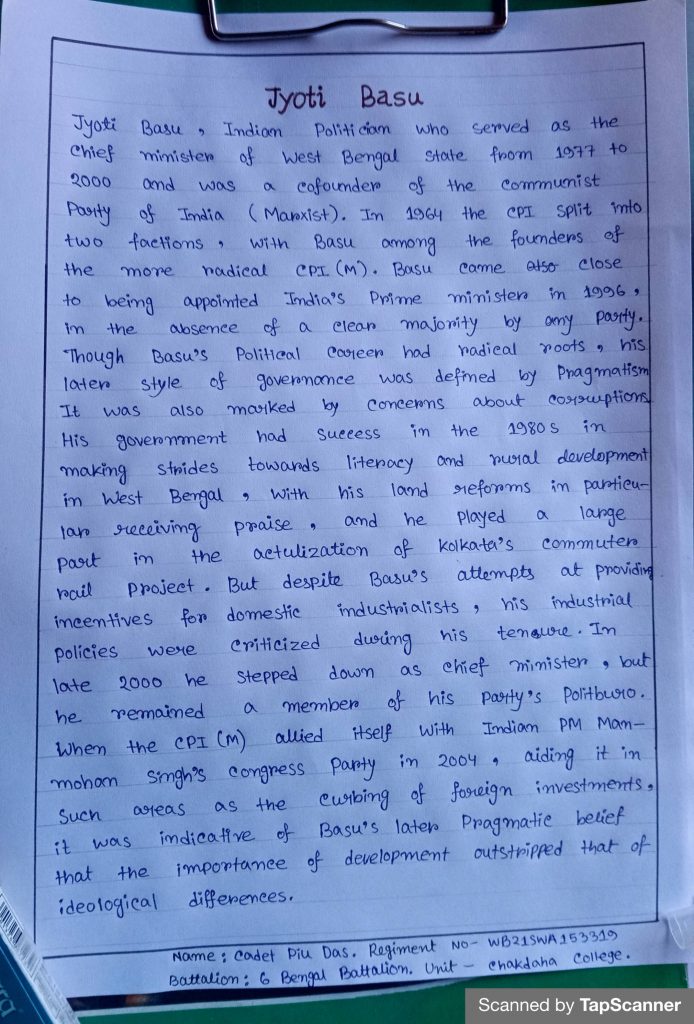 Jyoti Basu
Jyoti Basu, Indian Politician who served as the
Chief minister of West Bengal state from 1977 to
2000 and was a cofounder of the communist
Party of India (Marxist). In 1964 the CPI split into
two factions, with Basu among the founders of
the more radical CPI (M). Basu came also close
to being appointed India's Prime minister in 1996,
in the absence of a clear majority by any party.
Though Basu's Political career had radical roots, his
later style of governance was defined by Pragmatism
It was also marked by concerns about corruptions
His government had success in the 1980s in
making strides towards literacy and rural development
in West Bengal, with his land reforms in particu-
lar receiving praise, and he played a large
part in the actulization of Kolkata's commuter
rail Project. But despite Basu's attempts at providing
incentives for domestic industrialists, his industrial
policies were criticized during his tenure. In
late 2000 he stepped down as chief minister, but
he remained a member of his party's Politburo.
When the CPI (M) allied itself with Indian PM Man-
mohan Singh's congress Party in 2004, aiding it in
such areas as the curbing of foreign investments,
it was indicative of Basu's later Pragmatic belief
that the importance of development outstripped that of
ideological differences.
Name: Cadet Piu Das. Regiment No- WB21SWA153319
Battalion: 6 Bengal Battalion. Unit - Chakdaha College.
Scanned by TapScanner